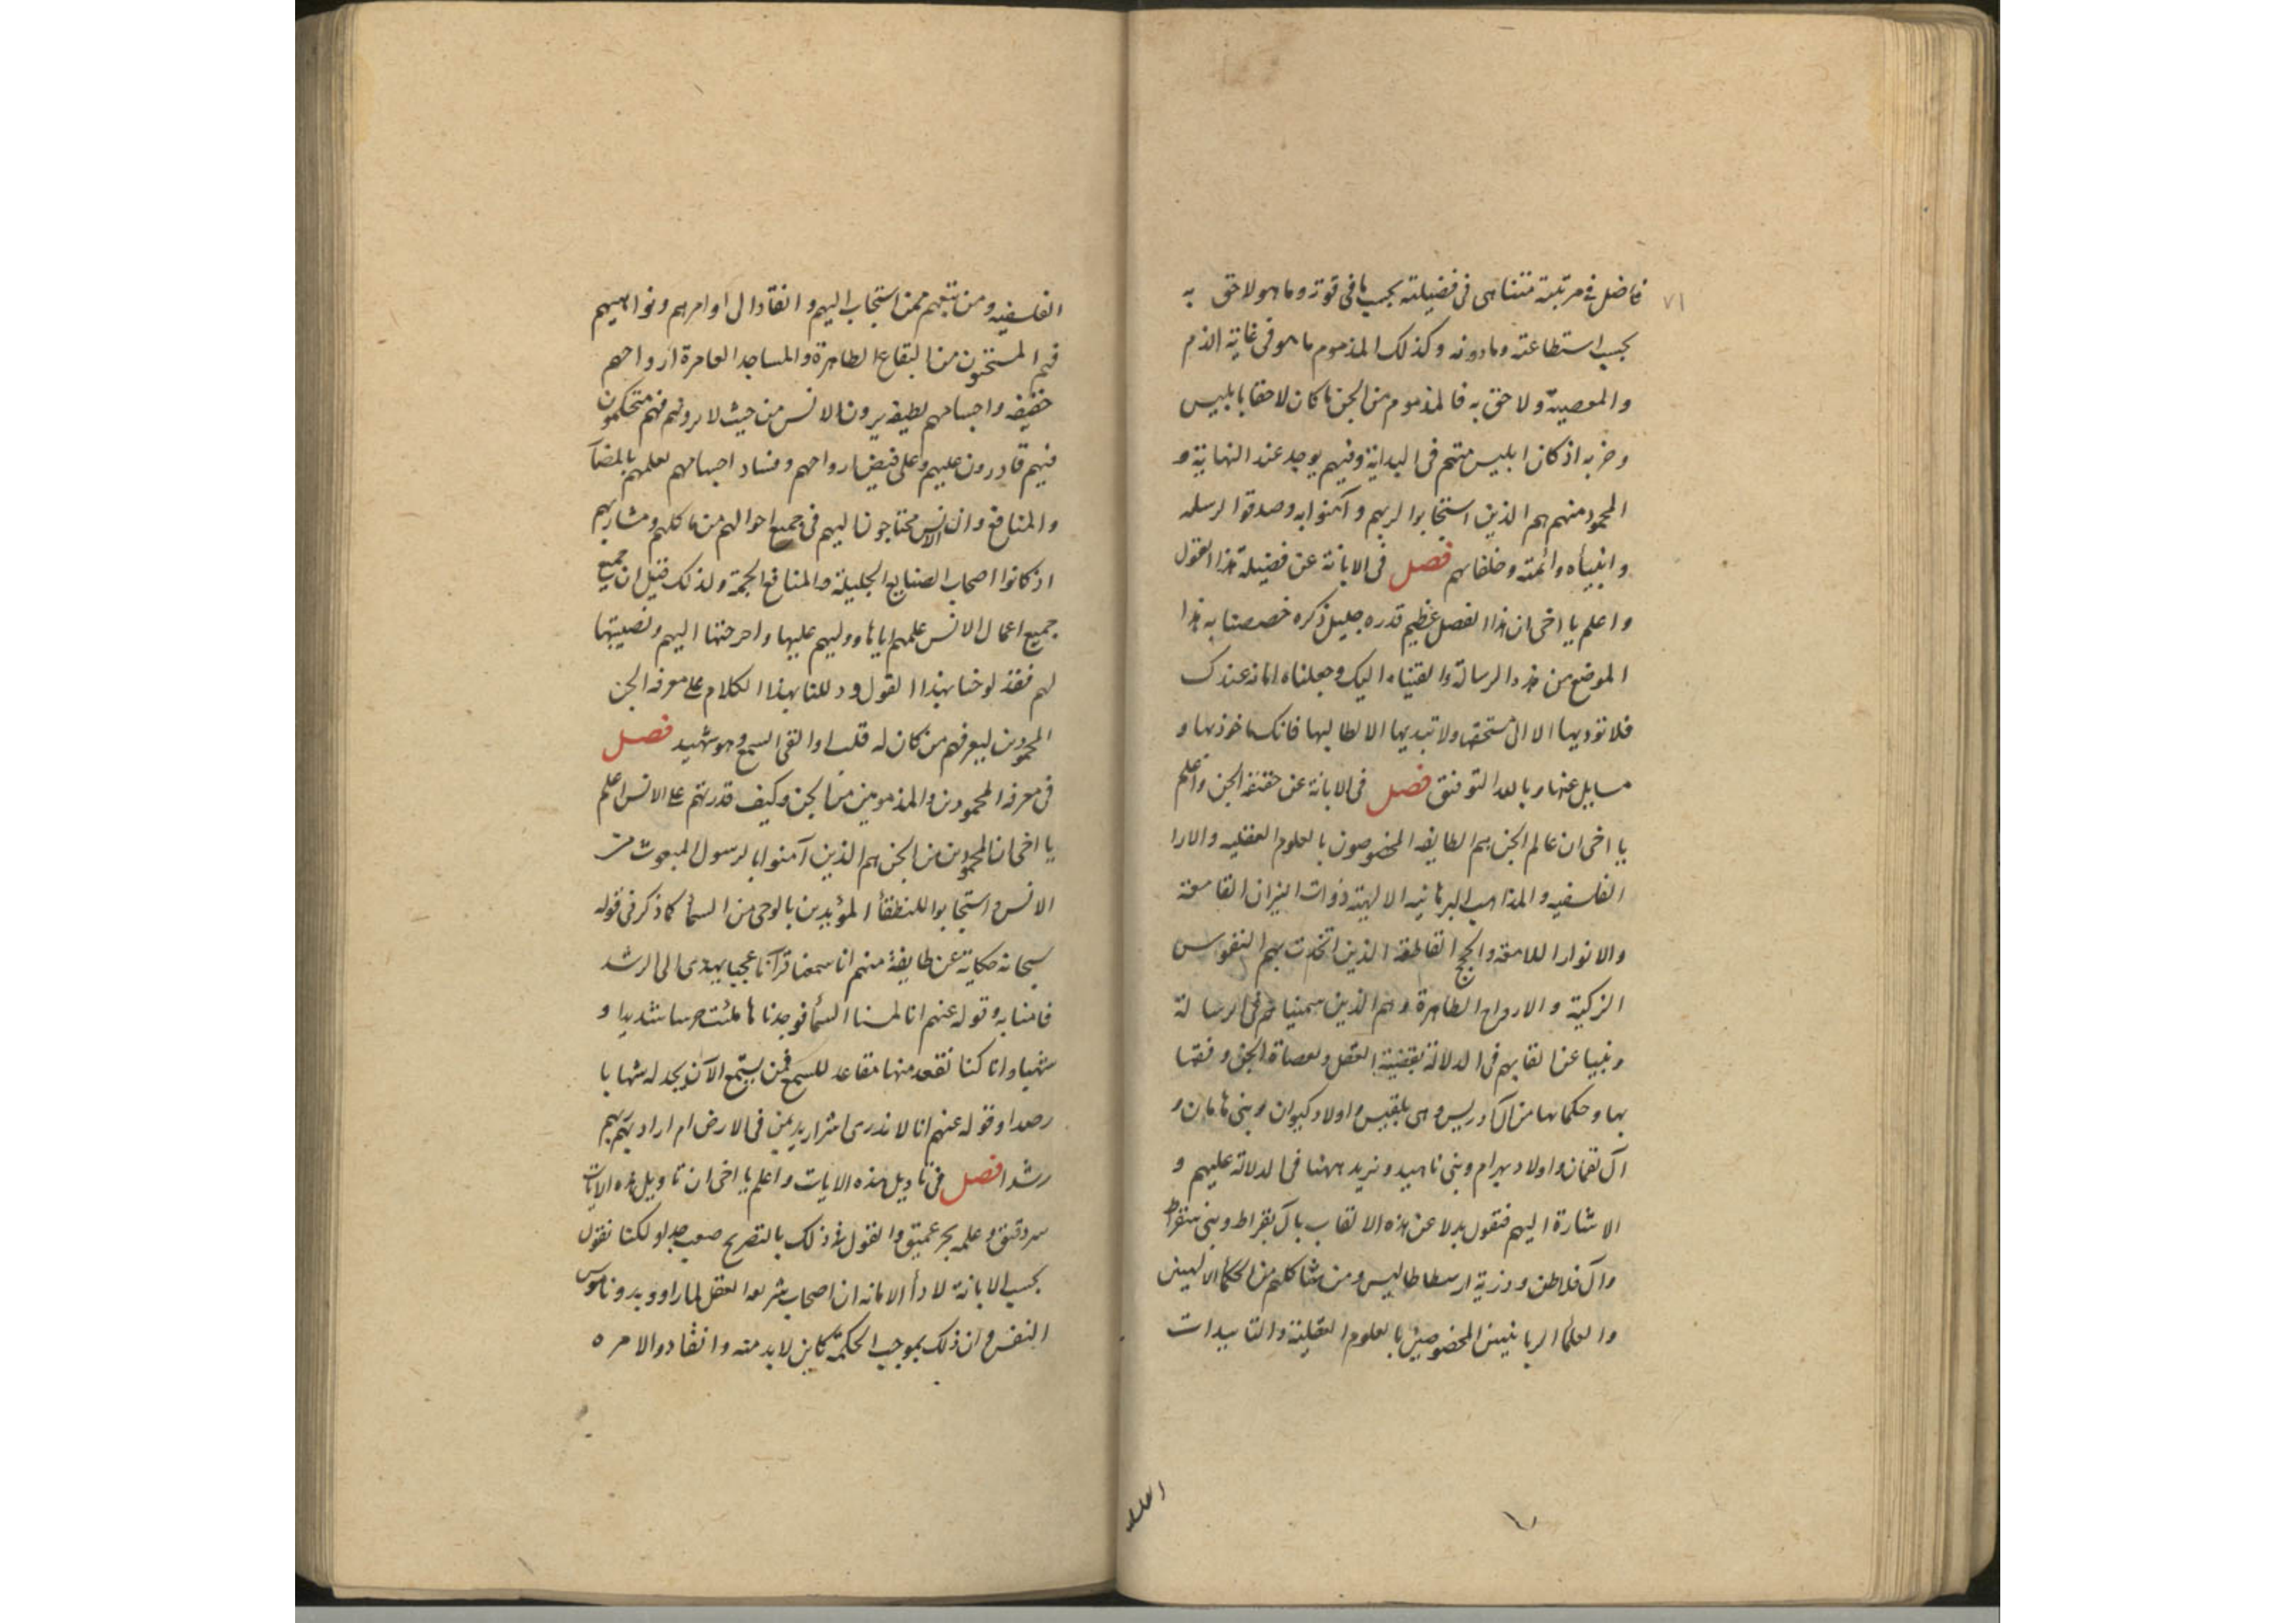 ٧١
فاضل فى مرتبته متناهى فى فضيلته بحسب ما فى قوته وما هو لاحق به
بحسب استطاعته وما دونه وكذلك المذموم ما هو فى غاية الذم
والمعصية ولاحق به فالمذموم من الجن ما كان لاحقا بابليس
وحزبه اذ كان ابليس منهم فى البداية وفيهم يوجد عند النهاية و
المحمود منهم هم الذين استجابوا لربهم وآمنوا به وصدقوا لرسله
وانبيأه وائمته وخلفايهم فصل فى الابانة عن فضيلة هذا القول
واعلم يا اخى ان هذا الفصل عظيم قدره جليل ذكره خصصنا به هذا
الموضع من هذه الرسالة والقيناه اليك وجعلناه امانه عندك
فلا توديها الا الى مستحقها ولا تبديها الا لطالبها فانك ماخوذ بها و
مسايل عنها وبالله التوفيق فصل فى الابانة عن حقيقة الجن واعلم
يا اخى ان عالم الجن هم الطايفه المخصوصون بالعلوم العقليه والارا
الفلسفيه والمذاهب البرهانيه الالهية ذوات النيران القامعة
والانوار اللامعه والحجج القاطعة الذين اتحدت بهم النفوس
الزكية والارواح الطاهرة وهم الذين سميناهم فى الرسالة
ونبينا عن القابهم فى الدلالة بقضية العقل ولعصاة الجن وفقها
بها وحكمايها من آل ادريس وهى بلقيس واولاد كيوان وبنى هامان و
آل لقمان واولاد بهرام وبنى ناهيد ونريد ههنا فى الدلالة عليهم و
الاشارة اليهم فنقول بدلا عن هذه الالقاب بآل بقراط وبنى سقراط
وآل فلاطن وذرية ارسطاطاليس ومن يشاكلهم من الحكمأ الالهيين
والعلمأ الربانيين المخصوصين بالعلوم العقلية والتاييدات
الفلسفيه
الفلسفيه ومن تبعهم ممن استجاب اليهم وانقاد الى اوامرهم ونواهيهم
فهم المستخنون من البقاع الطاهرة والمساجد العامرة ارواحهم
خفيفه واجسامهم لطيفه يرون الانس من حيث لا يرونهم فهم متحكمون
فيهم قادرون عليهم وعلى قبض ارواحهم وفساد اجسامهم لعلمهم بالمضآ
والمنافع وان الانس محتاجون اليهم فى جميع احوالهم من ماكلهم ومشاربهم
اذ كانوا اصحاب الصنايع الجليلة والمنافع الجمة ولذلك قيل ان جميع
جميع اعمال الانس علمهم اياها ووليهم عليها واخرجتها اليهم ونصبتها
لهم فقد لوحنا بهذا القول ودللنا بهذا الكلام على معرفه الجن
المحمودين ليعرفهم من كان له قلب او القى السمع وهو شهيد فصل
فى معرفه المحمودين والمذمومين من الجن وكيف قدرتهم على الانس اعلم
يا اخى ان المحمودين من الجن هم الذين آمنوا بالرسول المبعوث من
الانس واستجابوا للنطقأ المؤيدين بالوحى من السمأ كما ذكر فى قوله
سبحانه حكاية عن طايفة منهم انا سمعنا قرآنا عجبا يهدى الى الرشد
فامنا به وقوله عنهم انا لمسنا السمأ فوجدناها ملئت حرسا شديدا و
شهبا وانا كنا نقعد منها مقاعد للسمع فمن يستمع الآن يجد له شهابا
رصدا وقوله عنهم انا لا ندرى اشر اريد بمن فى الارض ام اراد بهم ربهم
رشدا فصل فى تاويل هذه الايات واعلم يا اخى ان تاويل هذه الايات
سر دقيق وعلمه بحر عميق والقول فى ذلك بالتصريح صعب جدا ولكنا نقول
بحسب الابانة لادأ الامانه ان اصحاب شريعه العقل لما راوو بدو ناموس
النفس وان ذلك بموجب الحكمة كاين لا بد منه وانقادوا لامره